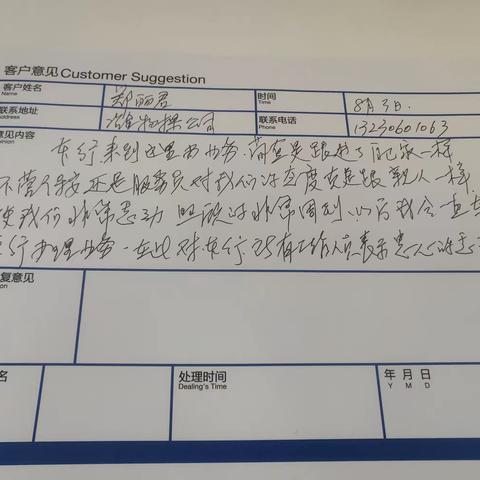 客户意见 Customer Suggestion
客户姓名 Name 郑丽君 时间 Time 8月3日.
联系地址 Address 公司 联系电话 Phone 13230601063
意见内容 Opinion
来到这里办业务,简直是跟到了自己家一样
不管经理还是服务员对我们的态度真是跟亲人一样,
使我们非常感动 照顾的非常周到,以后我会
行办理业务。在此对 行所有工作人员表示
复意见
名 处理时间 Dealing's Time 年 月 日
Y M D